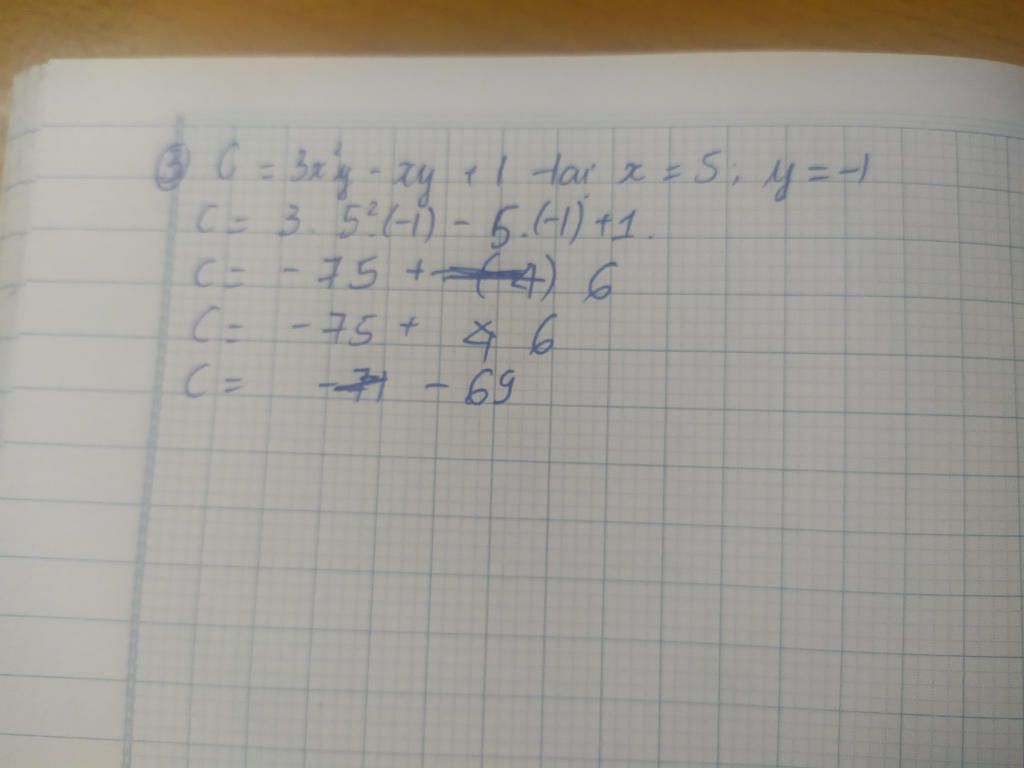 ③ C = 3x²y - xy + 1 tại x = 5; y = -1
C = 3. 5².(-1) - 5.(-1) +1.
C = -75 + 6
C = -75 + 6
C = - 69